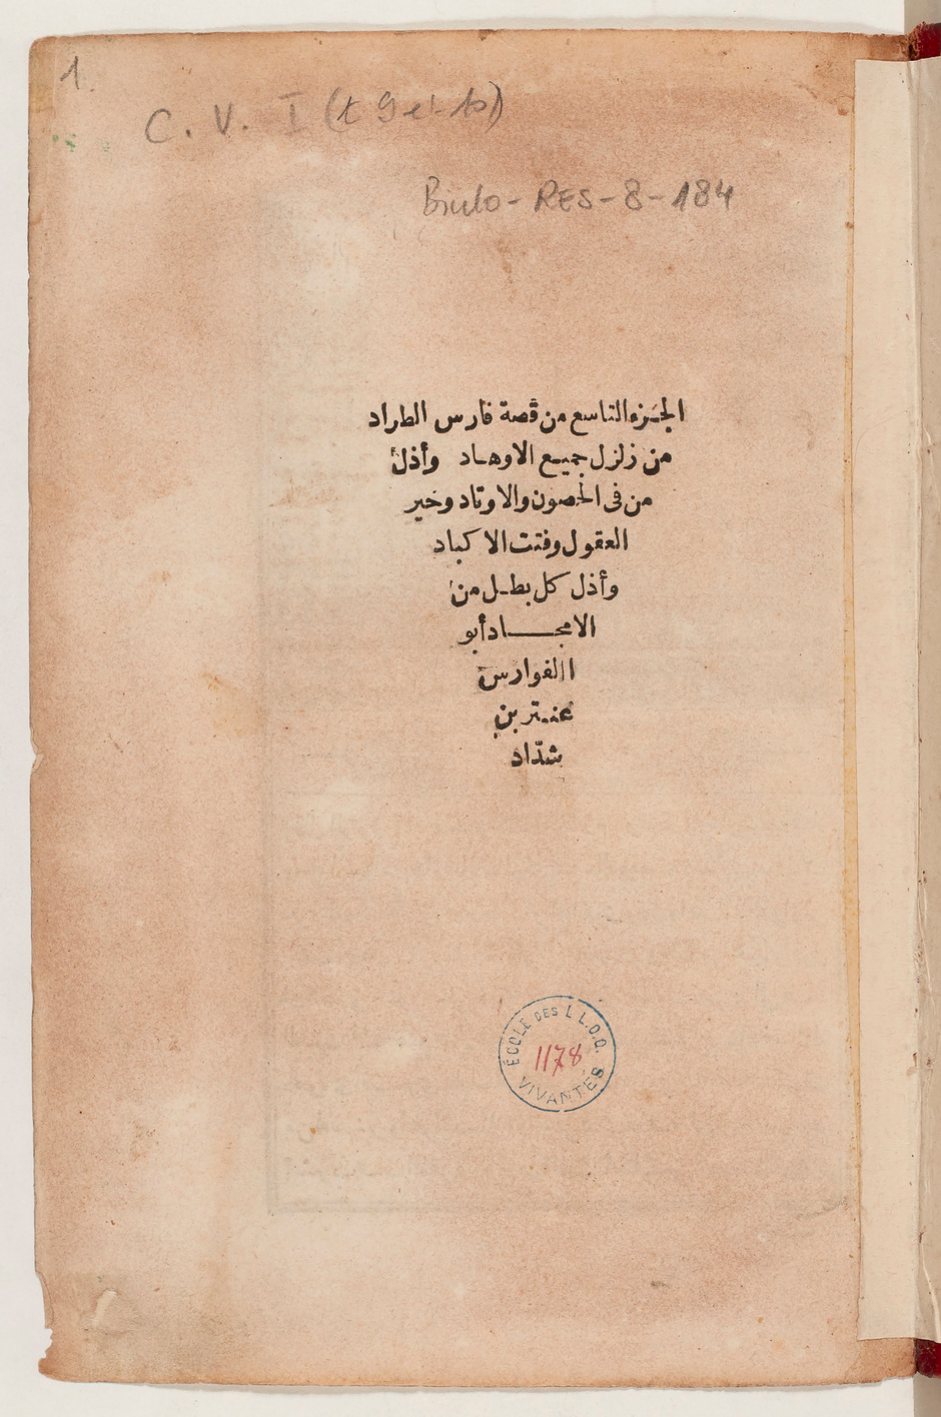 1
C. V. I (t 9 et 10)
Biulo-RES-8-184
الجزء التاسع من قصة فارس الطراد
من زلزل جميع الاوهاد وأذل
من فى الحصون والاوتاد وخير
العقول وفتت الاكباد
وأذل كل بطل من
الامجاد أبو
االفوارس
عنتر بن
شدّاد
ÉCOLE DES L L.O.O. VIVANTES
1178